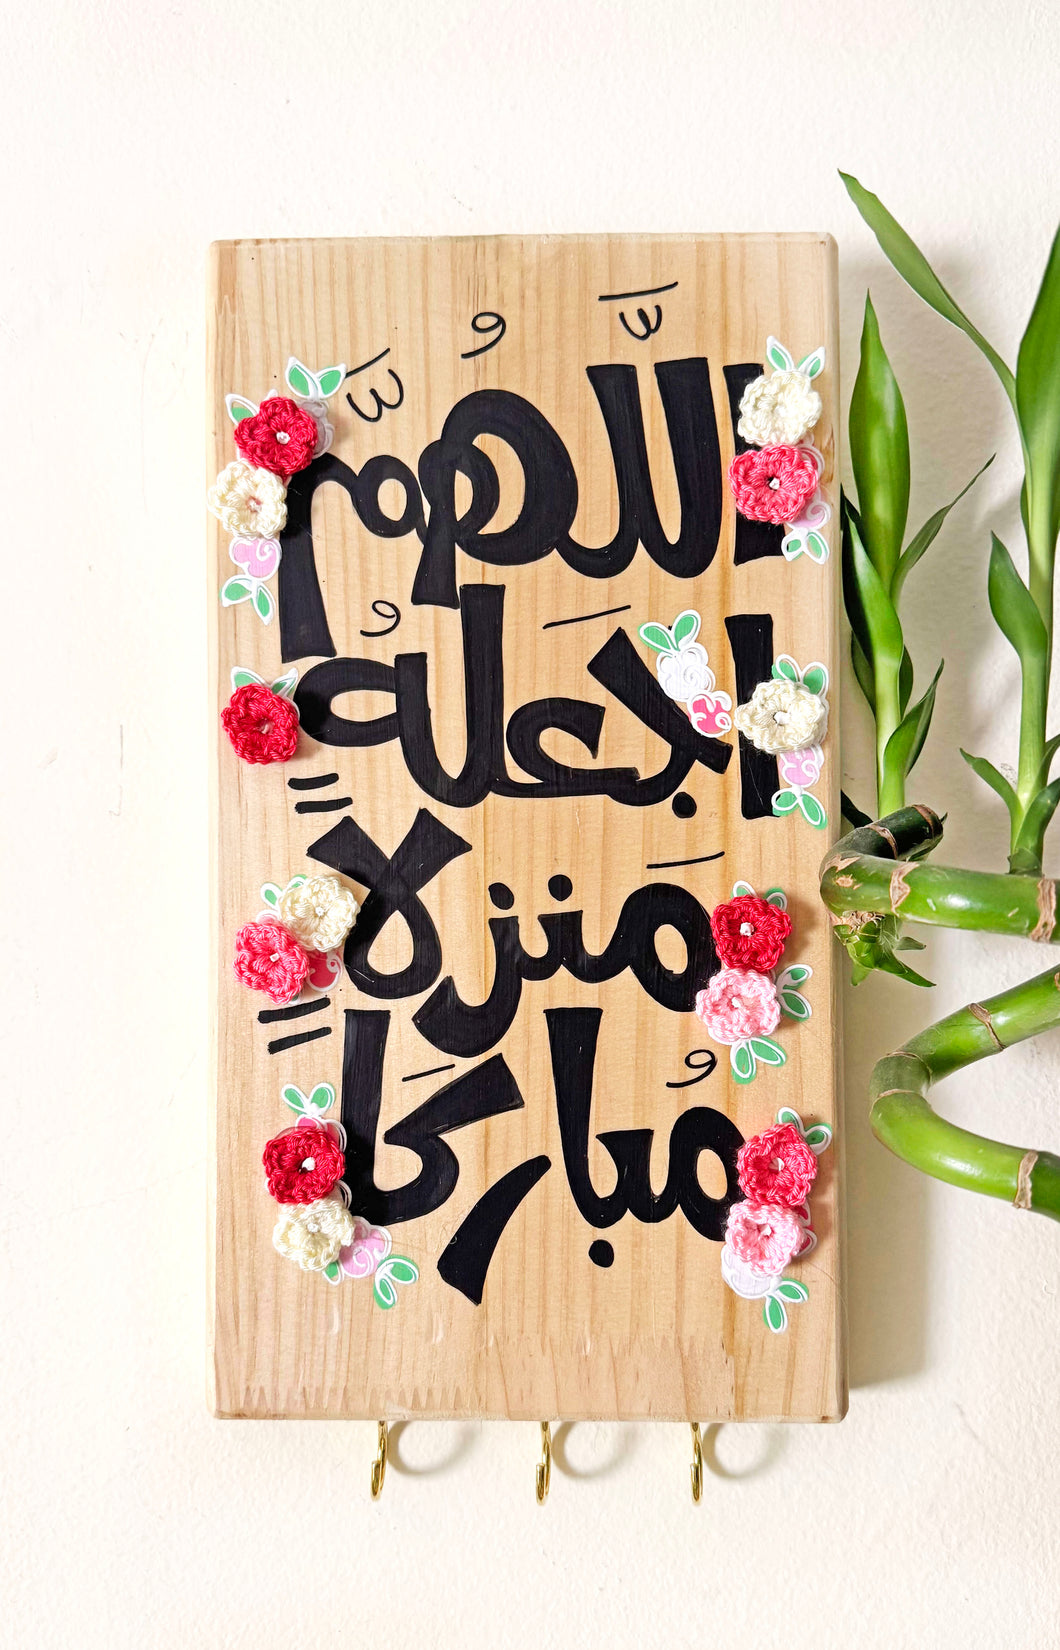 اللَّهُمَّ
اجَعلهُ
مَنزلاً
مُباركَاً